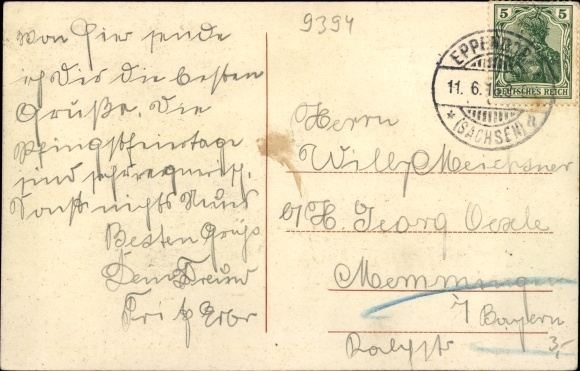 9394
Von hier sende
ich Dir die besten
Grüße. Die
Pfingstfeiertage
sind sehr regnerisch.
Sonst nichts Neues
Besten Gruß
Dein Freund
Fritz Erbr
5
DEUTSCHES REICH
EPPENDORF
11. 6.
* (SACHSEN) *
Herrn
Willy Meichsner
b/H. Georg Oexle
Memmingen
i/Bayern
3,-